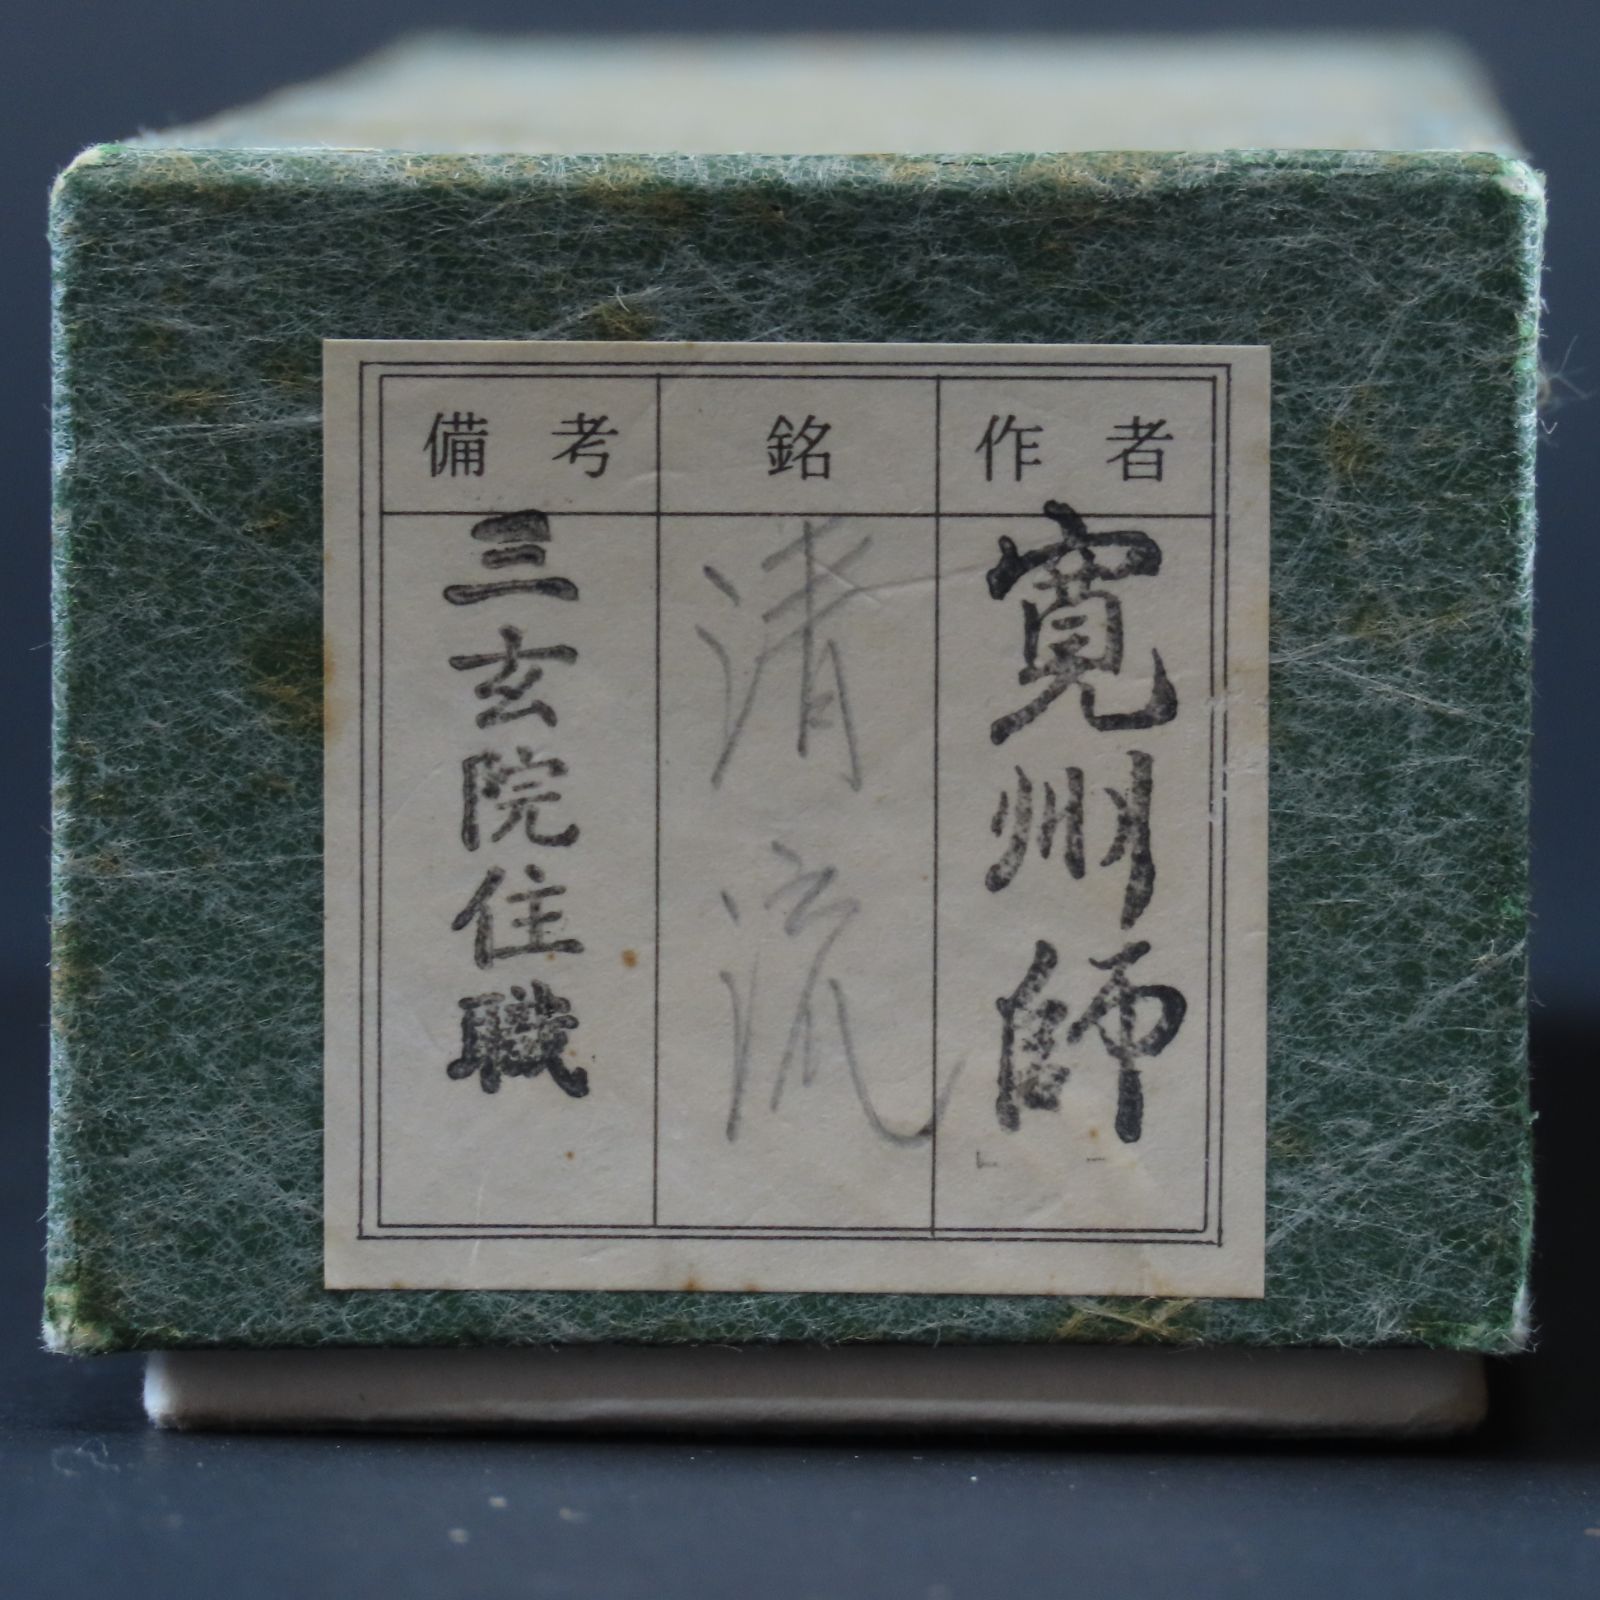 作者
寛州師
銘
清流
備考
三玄院住職